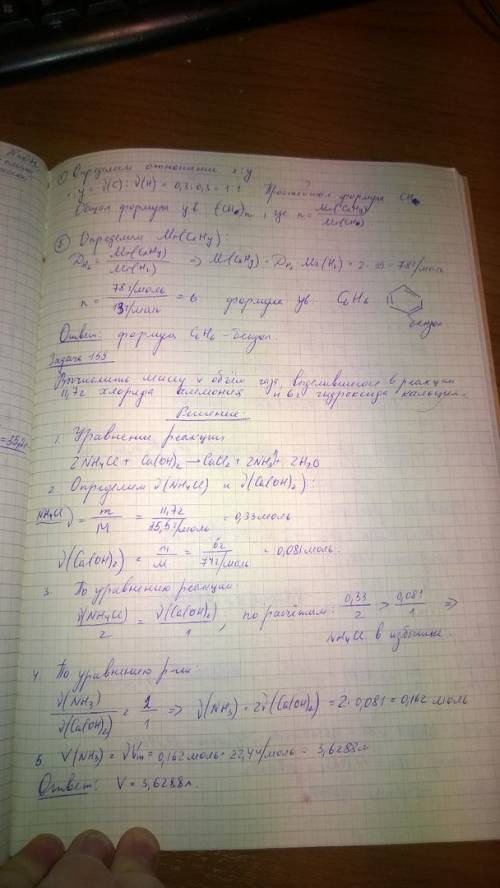 1) Определяем отношение x:y
x:y = ν(C) : ν(H) = 0,3:0,3 = 1:1 Простейшая формула CH
Общая формула ув (CH)n, где n = Mr(CxHy) / Mr(CH)
2) Определяем Mr(CxHy):
DH₂ = Mr(CxHy) / Mr(H₂) => Mr(CxHy) = DH₂ · Mr(H₂) = 2 · 39 = 78 г/моль
n = 78 г/моль / 13 г/моль = 6 формула ув. C₆H₆ бензол
Ответ: формула C₆H₆ - бензол.
Задача 153
Вычислить массу и объём газа, выделившегося в реакции
11,7г хлорида аммония и 6г гидроксида кальция.
Решение:
1. Уравнение реакции
2NH₄Cl + Ca(OH)₂ → CaCl₂ + 2NH₃↑ + 2H₂O
2. Определяем ν(NH₄Cl) и ν(Ca(OH)₂):
NH₄Cl ν = m / M = 11,7г / 35,5г/моль = 0,33моль
ν(Ca(OH)₂) = m / M = 6г / 74г/моль = 0,081моль.
3. По уравнению реакции:
ν(NH₄Cl) / 2 = ν(Ca(OH)₂) / 1, по расчётам: 0,33 / 2 > 0,081 / 1 =>
NH₄Cl в избытке.
4. По уравнению р-ии:
ν(NH₃) / ν(Ca(OH)₂) = 2 / 1 => ν(NH₃) = 2ν(Ca(OH)₂) = 2·0,081 = 0,162 моль
5. V(NH₃) = νVm = 0,162моль · 22,4л/моль = 3,6288л
Ответ: V = 3,6288л.